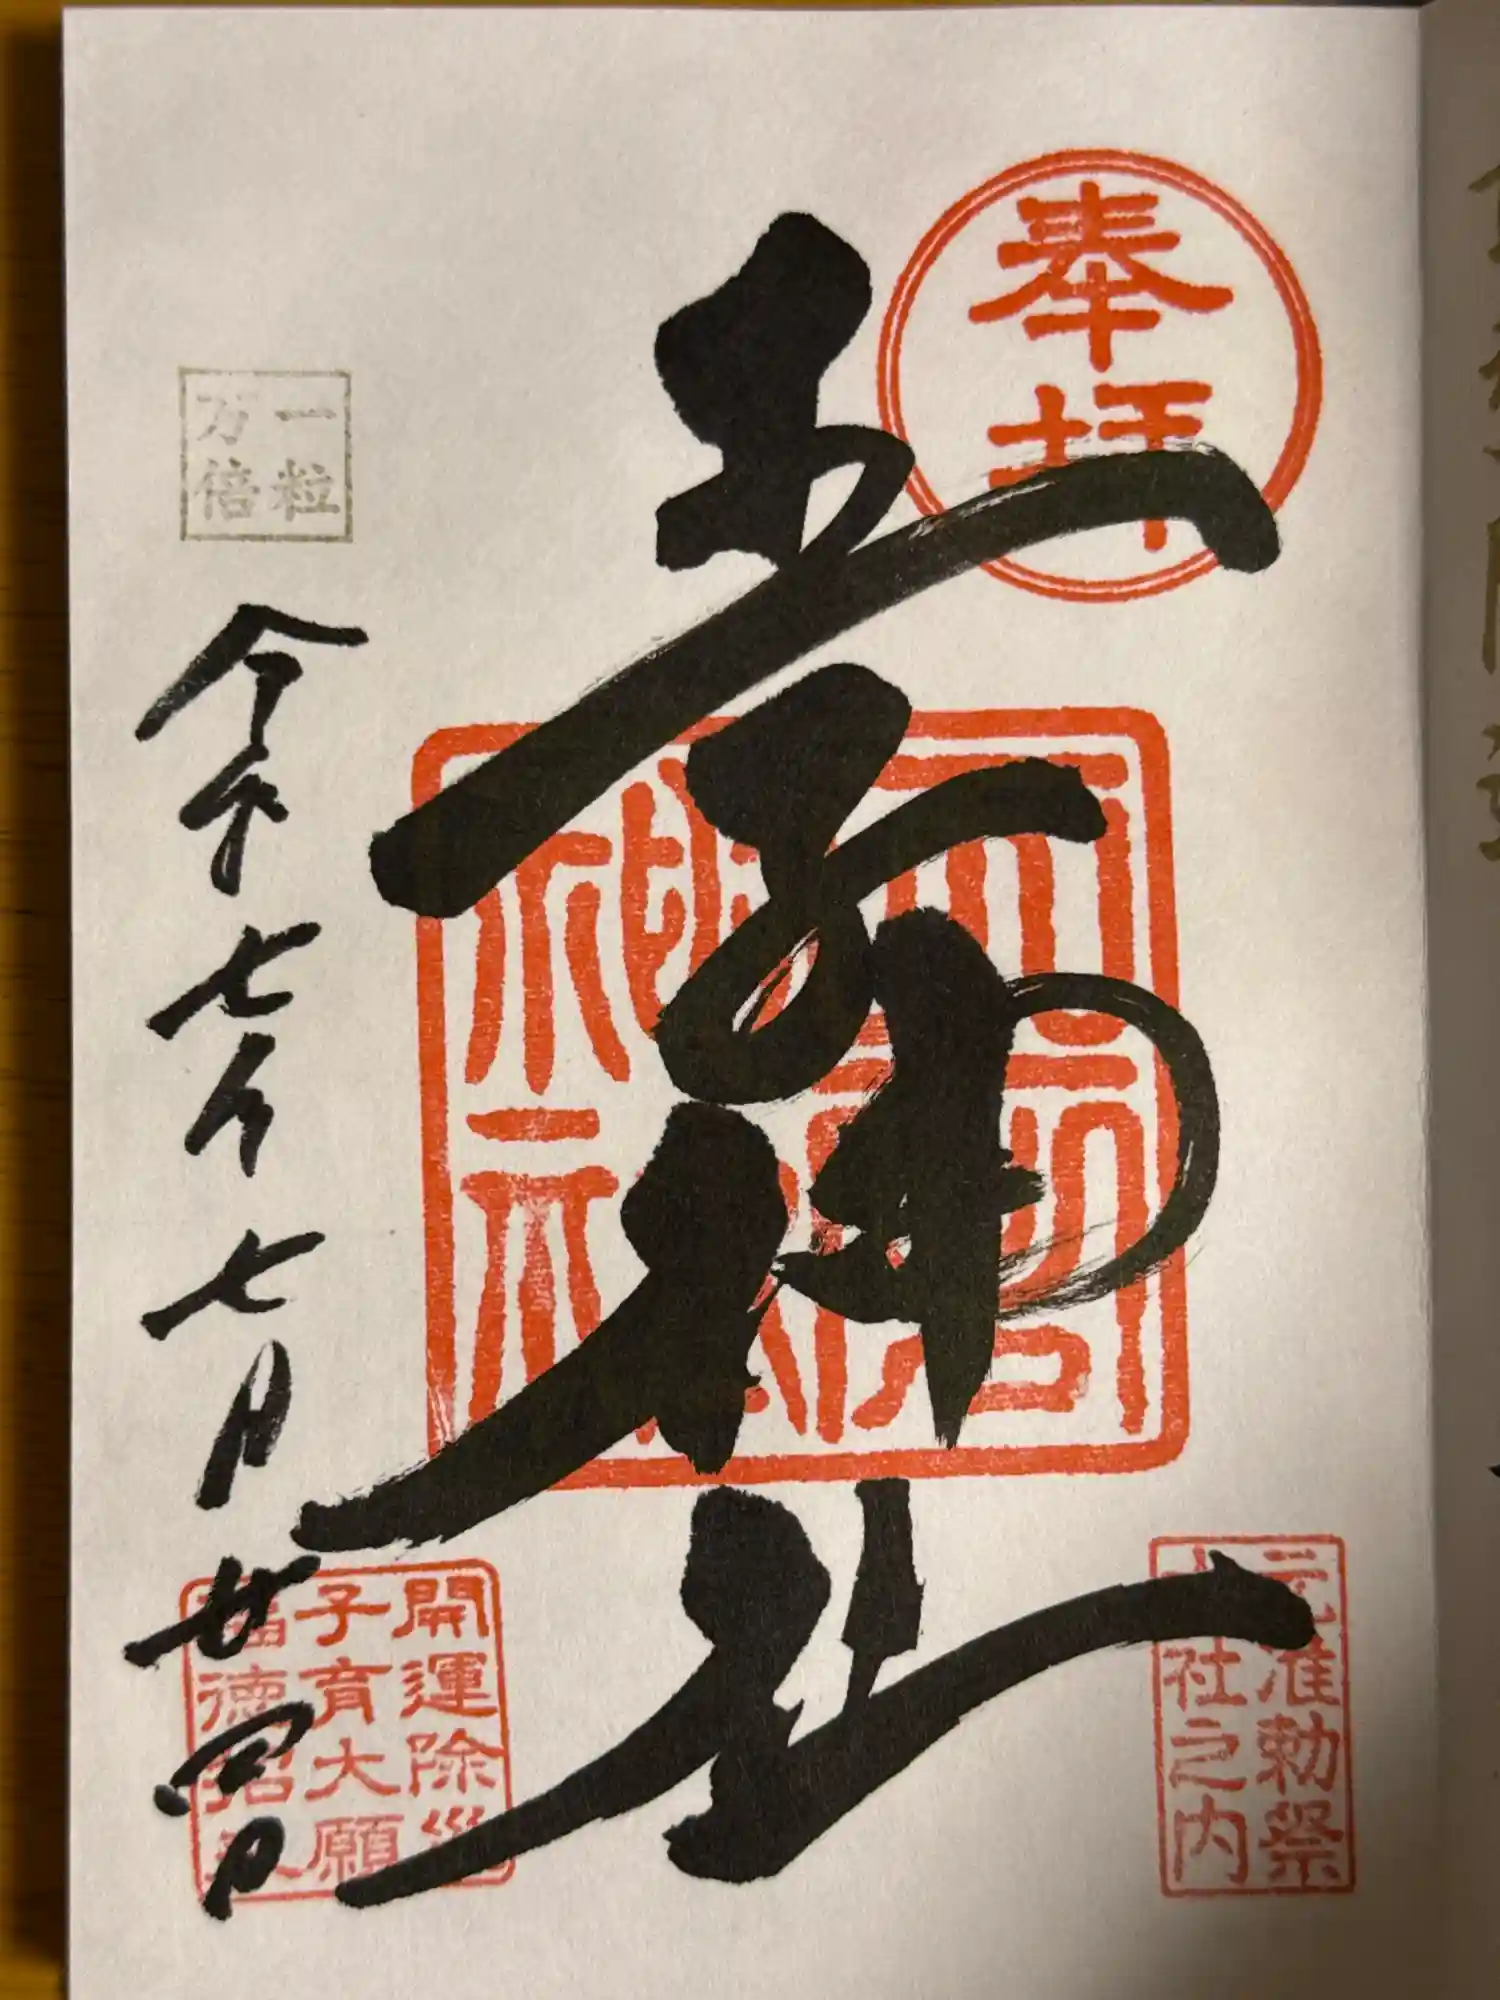 奉拝
元准勅祭
十社之内
王子神社
一粒
万倍
令和七年七月廿四日
開運除災
子育大願
福徳招来